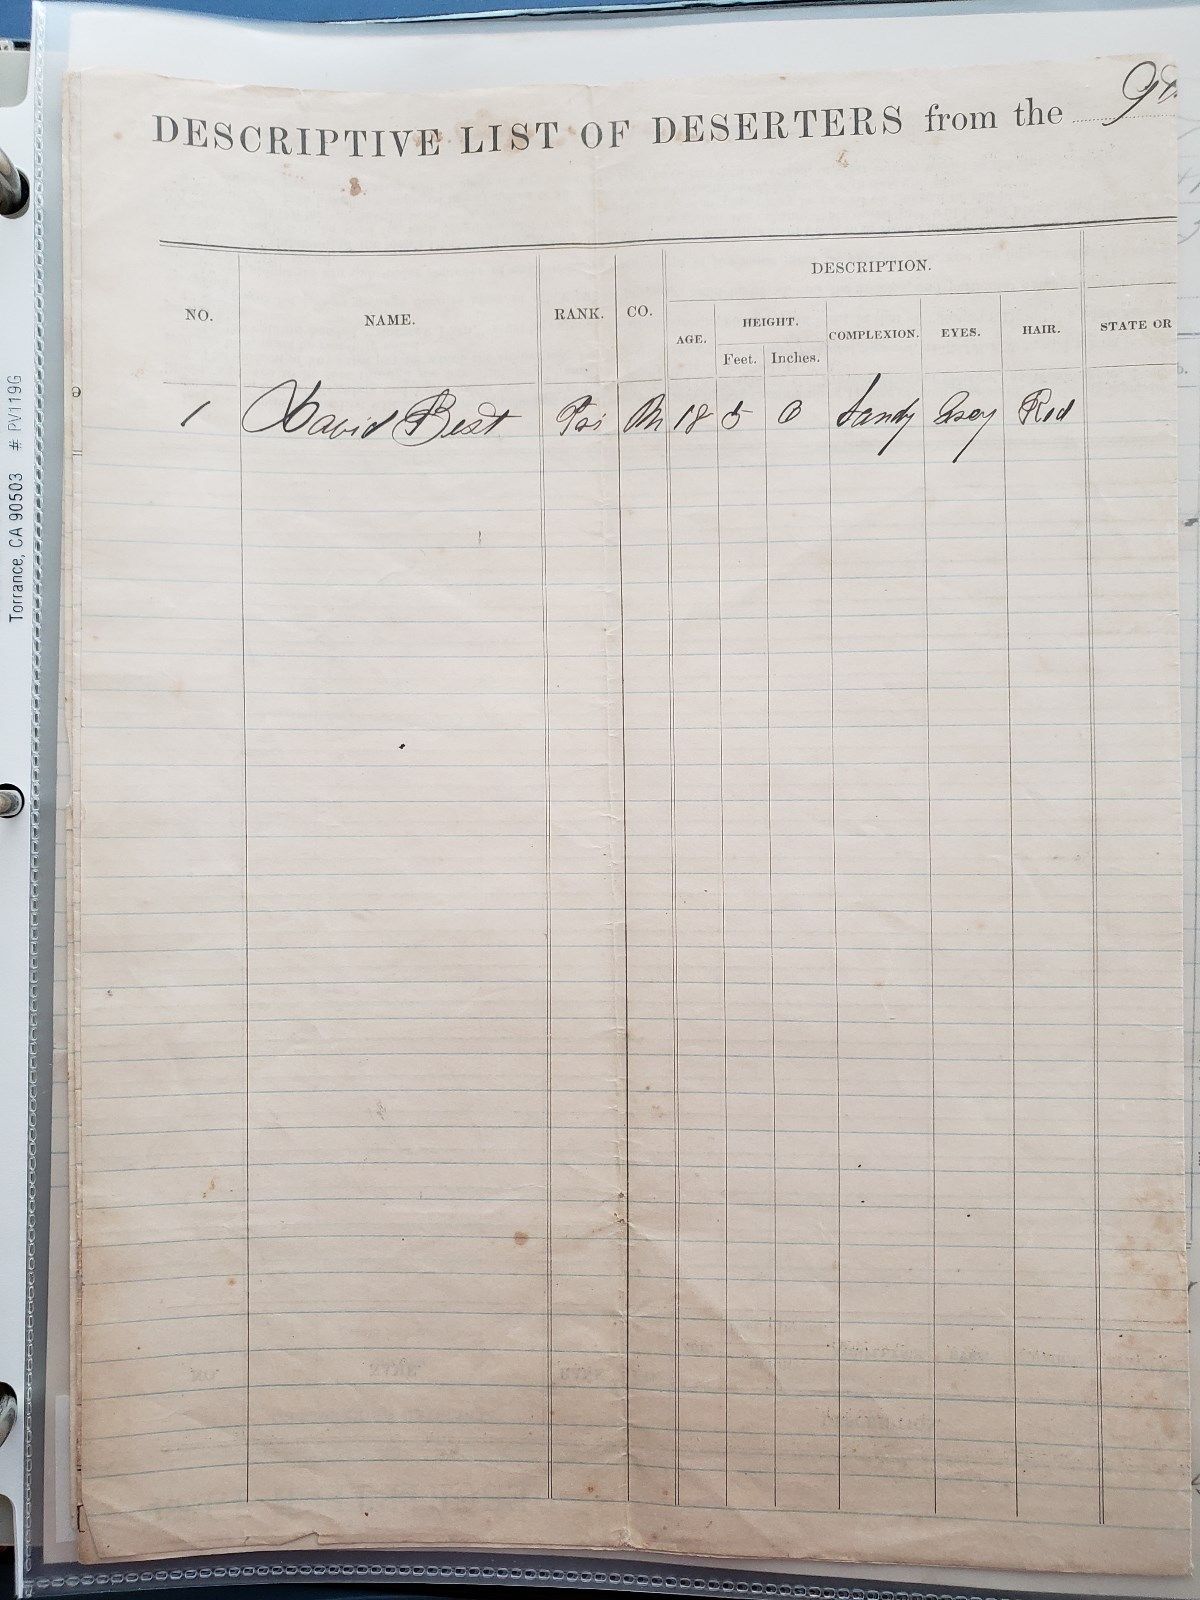 DESCRIPTIVE LIST OF DESERTERS from the 9th
NO. NAME. RANK. CO. DESCRIPTION.
AGE. HEIGHT. COMPLEXION. EYES. HAIR. STATE OR
Feet. Inches.
1 David Best Pri M 18 5 0 Sandy Grey Red
Torrance, CA 90503 # PV119G